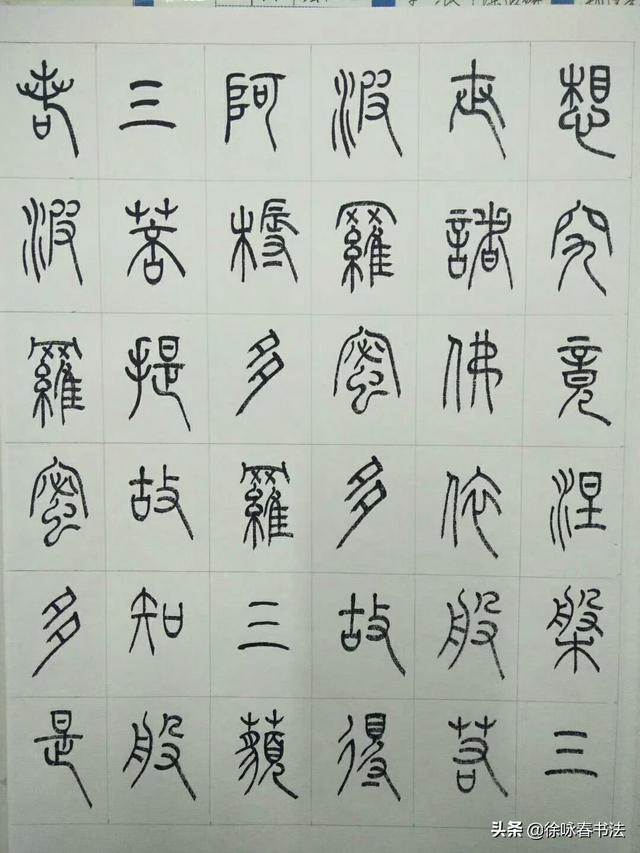 想究竟涅槃三
世諸佛依般若
波羅蜜多故得
阿槈多羅三藐
三菩提故知般
若波羅蜜多是
头条 @徐咏春书法